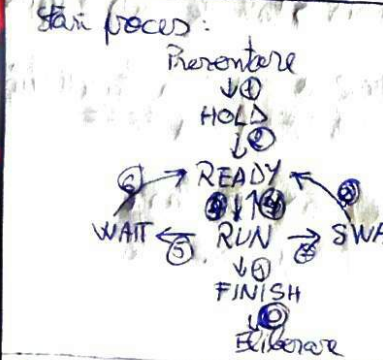 Stări proces:
Prezentare
↓ ①
HOLD
↓ ②
READY
⑥ ③ ↓ ↑ ④ ⑧
WAIT ← RUN → SWA
⑤ ⑦
↓ ⑨
FINISH
↓ ⑩
Eliberare